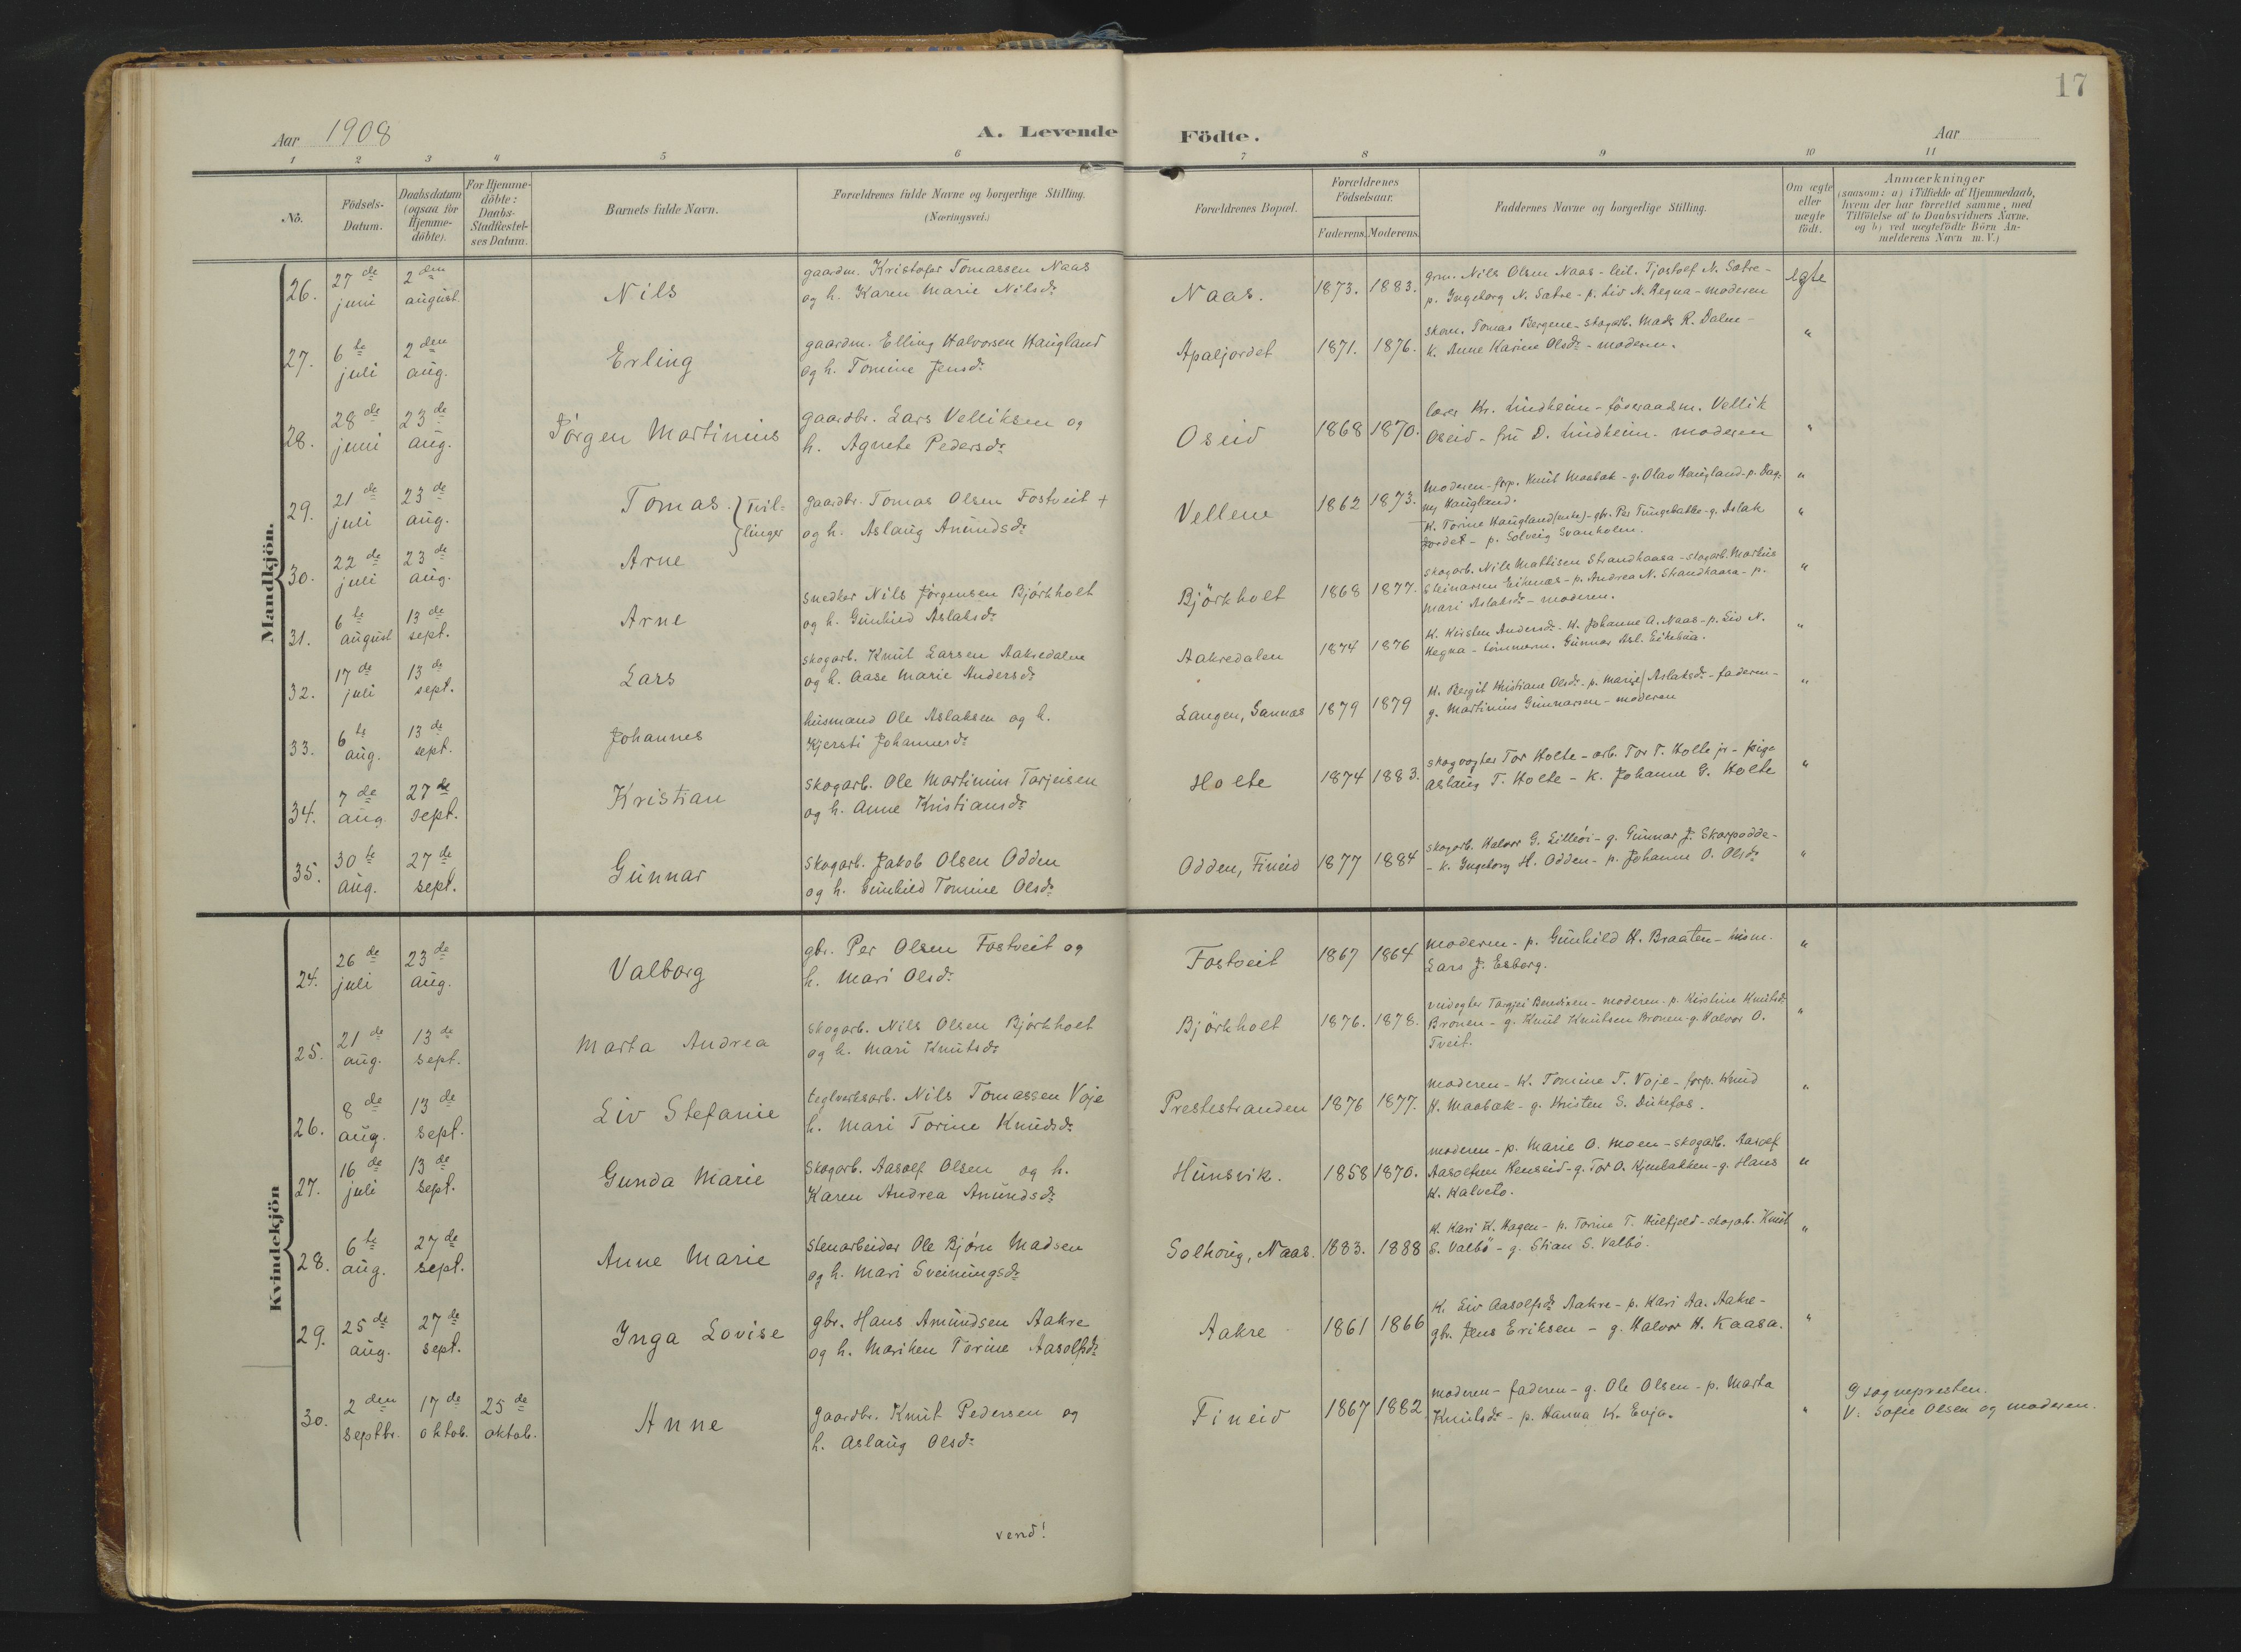 17
Aar 1908
A. Levende Födte.
Aar
1 2 3 4 5 6 7 8 9 10 11
No.
Födsels-
Datum.
Daabsdatum
(ogsaa for
Hjemme-
döbte).
For Hjemme-
döbte:
Daabs-
Stadfæstel-
ses Datum.
Barnets fulde Navn.
Forældrenes fulde Navne og borgerlige Stilling.
(Næringsvei.)
Forældrenes Bopæl.
Forældrenes
Födselsaar.
Faderens. Moderens.
Faddernes Navne og borgerlige Stilling.
Om ægte
eller
uægte
födt.
Anmærkninger
(saasom: a) i Tilfælde af Hjemmedaab,
hvem der har forrettet samme, med
Tilföielse af to Daabsvidners Navne.
og b) ved uægtefödte Börn An-
melderens Navn m.V.)
Mandkjön.
26. 27de juni 2den august. Nils
gaardm. Kristofer Tomassen Naas
og h. Karen Marie Nilsdr.
Naas. 1873. 1883.
grm. Nils Olsen Naas - leil. Tjostolf N. Sætre -
p. Ingeborg N. Sætre - p. Liv N. Hegna - moderen
egte
27. 6te juli 2den aug. Erling
gaardm. Elling Halvorsen Haugland
og h. Tomine Jensdr.
Apaljordet 1871. 1876.
skom. Tomas Bergene - skogarb. Mads R. Dalne -
k. Anne Karine Olsdr. - moderen.
"
28. 28de juni 23de aug. Jörgen Martinius
gaardbr. Lars Velliksen og
h. Agnete Pedersdr.
Oseid 1868 1870.
lærer Kr. Lindheim - föderaadsm. Vellik
Oseid - fru D. Lindheim. moderen
"
29. 21de juli 23de aug. Tomas. } Tvil-
linger
gaardbr. Tomas Olsen Fostveit +
og h. Aslaug Anundsdr.
Vellene 1862 1873.
moderen - forp. Knut Maabak - g. Olav Haugland - p. Dag-
ny Haugland.
"
30. 22de juli 23de aug. Arne
K. Torine Haugland (enke) - gbr. Per Tungebakke - g. Aslak
Jordet - p. Solveig Svanholm.
"
31. 6te august 13de sept. Arne
snedker Nils Jörgensen Björkholt
og h. Gunhild Aslaksdr.
Björkholt 1868 1877.
skogarb. Nils Mattisen Strandkaasa - skogarb. Martius
Steinarsen Eikenes - p. Andrea N. Strandkaasa - p.
Mari Aslaksdr. - moderen.
"
32. 17de juli 13de sept. Lars
skogarb. Knut Larsen Aakredalen
og h. Aase Marie Andersdr.
Aakredalen 1874 1876
K. Kirsten Andersdr. - K. Johanne A. Naas - p. Liv N.
Hegna - tömmerm. Gunnar Asl. Eikehaa.
"
33. 6te aug. 13de sept. Johannes
husmand Ole Aslaksen og h.
Kjersti Johannesdr.
Langen, Sannæs 1879 1879
K. Bergit Kristiane Olsdr. - p. Marie Aslaksdr. - faderen -
g. Martinius Gunnarsen - moderen
"
34. 7de aug. 27de sept. Kristian
skogarb. Ole Martinius Tarjeisen
og h. Anne Kristiansdr.
Holte 1874 1883.
skogvogter Tor Holte - arb. Tor T. Holte jr - pige
Aslaug T. Holte - K. Johanne G. Holte
"
35. 30te aug. 27de sept. Gunnar
skogarb. Jakob Olsen Odden
og h. Gunhild Tomine Olsdr.
Odden, Fineid 1877 1884
skogarb. Halvor G. Lilleöi - g. Gunnar J. Skarpodde -
- k. Ingeborg H. Odden - p. Johanne O. Olsdr.
"
Kvindekjön
24. 26de juli 23de aug. Valborg
gbr. Per Olsen Fostveit og
h. Mari Olsdr.
Fostveit 1867 1864
moderen - p. Gunhild H. Braaten - husm.
Lars J. Esborg.
"
25. 21de aug. 13de sept. Marta Andrea
skogarb. Nils Olsen Björkholt
og h. Mari Knutsdr.
Björkholt 1876. 1878.
veivogter Targjei Bendixen - moderen - p. Kirstine Knutsdr.
Bronen - g. Knut Knutsen Bronen - g. Halvor O.
Tveit.
"
26. 8de aug. 13de sept. Liv Stefanie
teglverksarb. Nils Tomassen Voje
h. Mari Torine Knudsdr.
Prestestranden 1876 1877.
moderen - K. Tomine T. Voje - forp. Knud
K. Maabæk - g. Kristen S. Dukefos.
"
27. 16de juli 13de sept. Gunda Marie
Skogarb. Aasolf Olsen og h.
Karen Andrea Anundsdr.
Hunsvik. 1858 1870.
moderen - p. Marie O. Moen - skogarb. Aasolf
Aasolfsen Henseid - g. Tor O. Kjenbakken - g. Hans
K. Kalveto.
"
28. 6te aug. 27de sept. Anne Marie
Stenarbeider Ole Björn Madsen
og h. Mari Sveinungsdr.
Solhoug, Naas. 1883. 1888
K. Kari K. Hagen - p. Torine T. Hulfjeld - skogarb. Knut
S. Valbö - g. Stian S. Valbö.
"
29. 25de aug. 27de sept. Inga Lovise
gbr. Hans Amundsen Aakre
og h. Mariken Torine Aasolfsdr.
Aakre 1861 1866
K. Liv Aasolfsdr. Aakre - p. Kari Aa. Aakre -
gbr. Jens Eriksen - g. Halvor H. Kaasa.
"
30. 2den septbr. 17de oktob. 25de oktob. Anne
gaardbr. Knut Pedersen og
h. Aslaug Olsdr.
Fineid 1867 1882
moderen - faderen - g. Ole Olsen - p. Marta
Knutsdr. - p. Hanna K. Evja.
"
sognepresten.
V: Sofie Olsen og moderen.
vend!